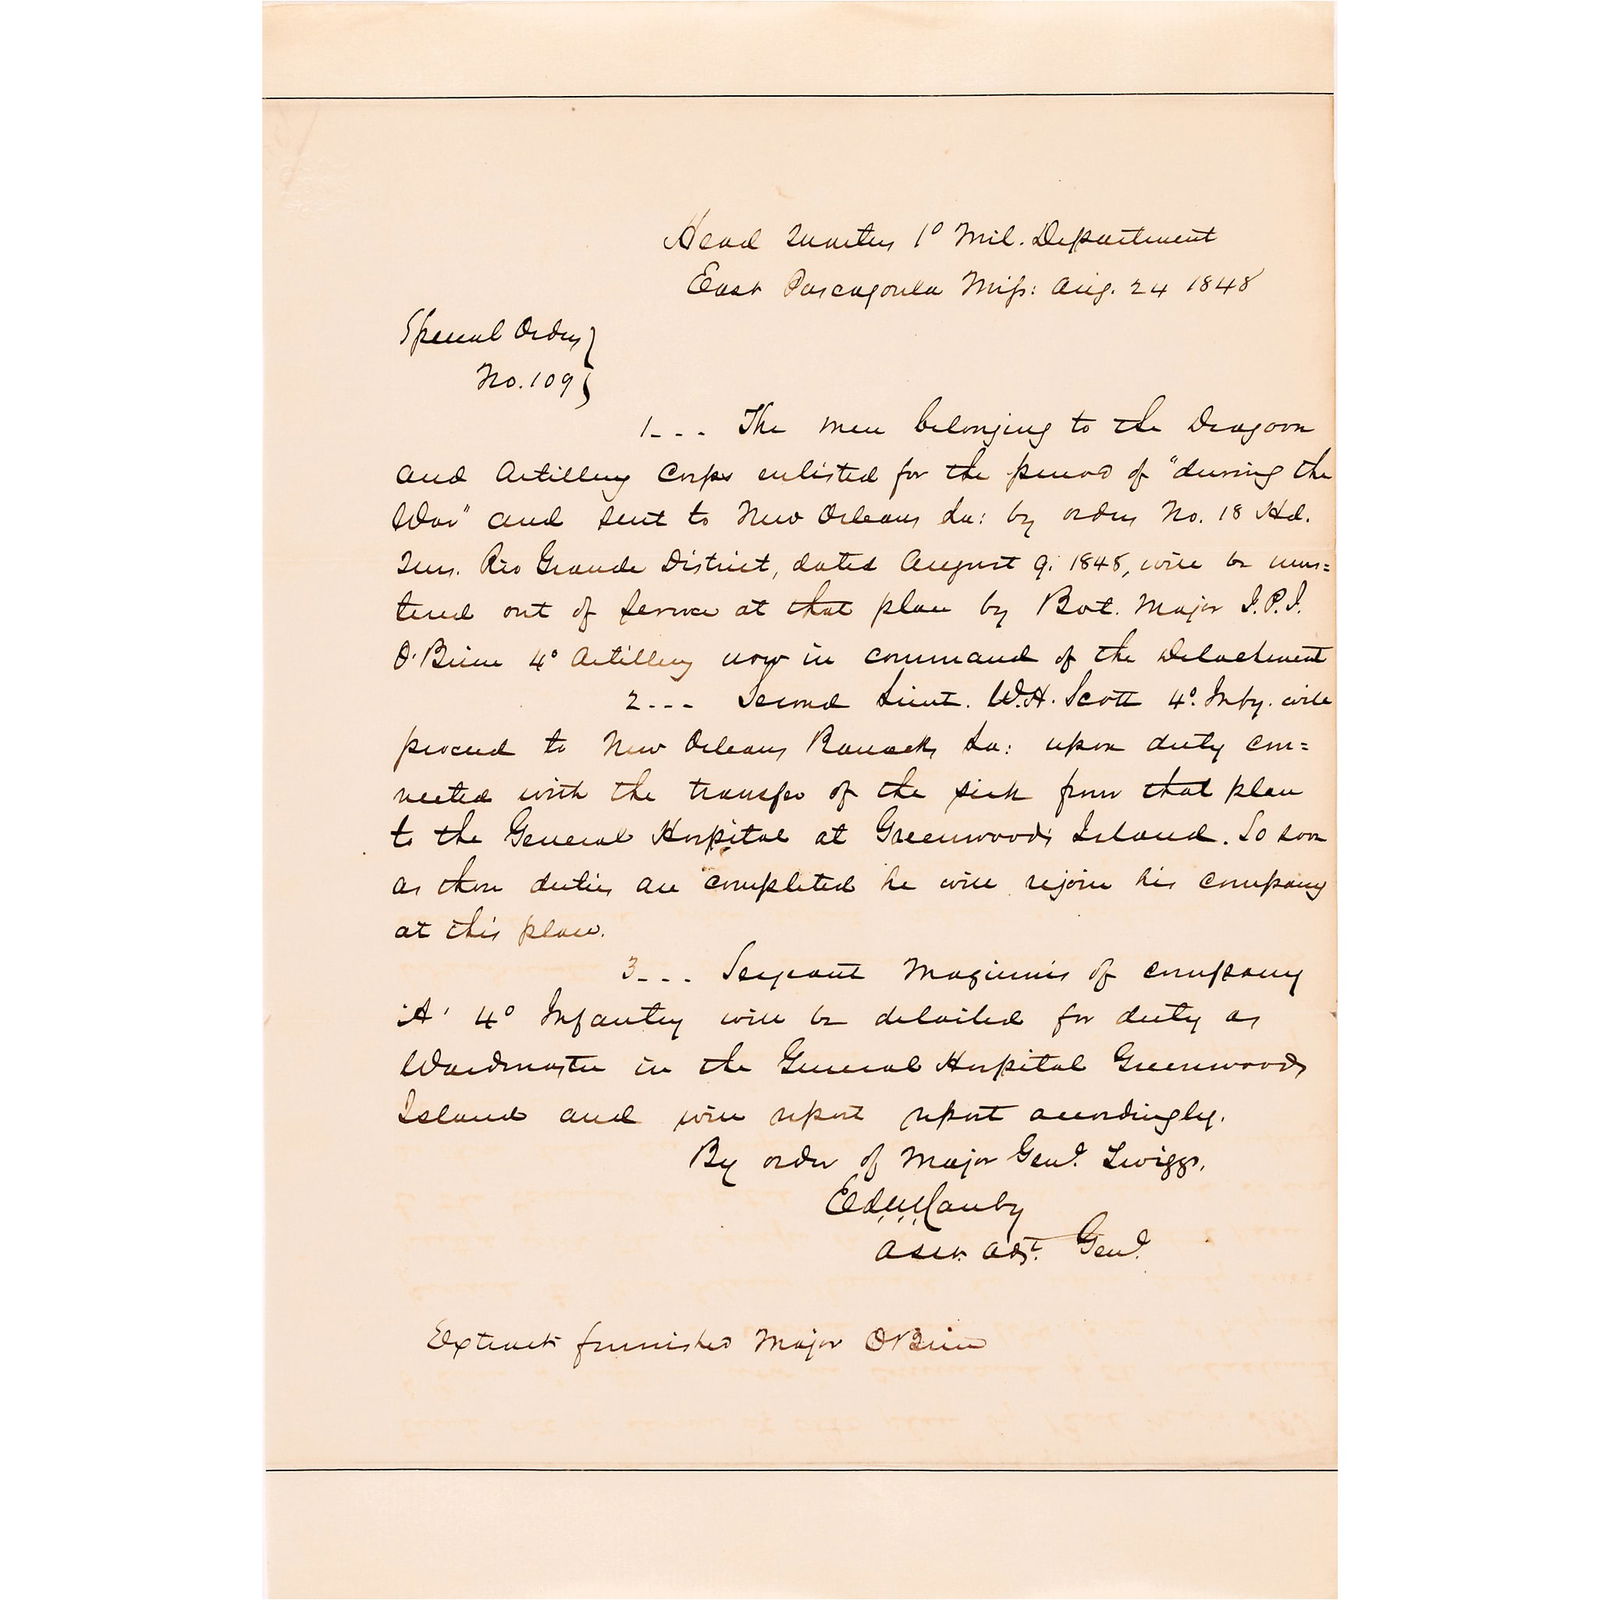 Head Quarters 1º Mil. Department
East Pascagoula Miss: Aug. 24 1848
Special Orders }
No. 109 }
1--- The men belonging to the Dragoon
and Artillery Corps enlisted for the period of "during the
War" and sent to New Orleans La: by orders No. 18 Hd.
Qurs. Rio Grande District, dated August 9. 1848, will be mus=
tered out of service at that place by Bvt. Major J.P.J.
O'Brien 4º Artillery now in command of the detachment
2--- Second Lieut. W.H. Scott 4º. Infy. will
proceed to New Orleans Barracks La: upon duty con=
nected with the transfer of the sick from that place
to the General Hospital at Greenwoods Island. So soon
as these duties are completed he will rejoin his company
at this place.
3--- Sergeant Maginnis of company
'A' 4º Infantry will be detailed for duty as
Wardmaster in the General Hospital Greenwoods
Island and will report report accordingly.
By order of Major Genl. Twiggs,
Ed. R. S. Canby
Asst. Adjt. Genl.
Extract furnished Major O'Brien